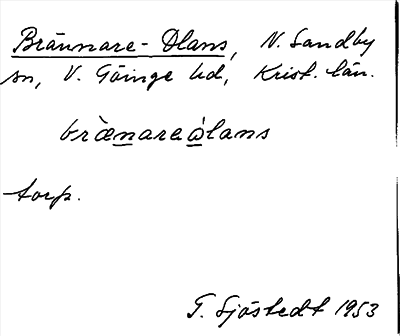 Brännare-Olans, N. Sandby
sn, V. Göinge hd, Krist. län.
bränareòlans
torp.
G. Sjöstedt 1953